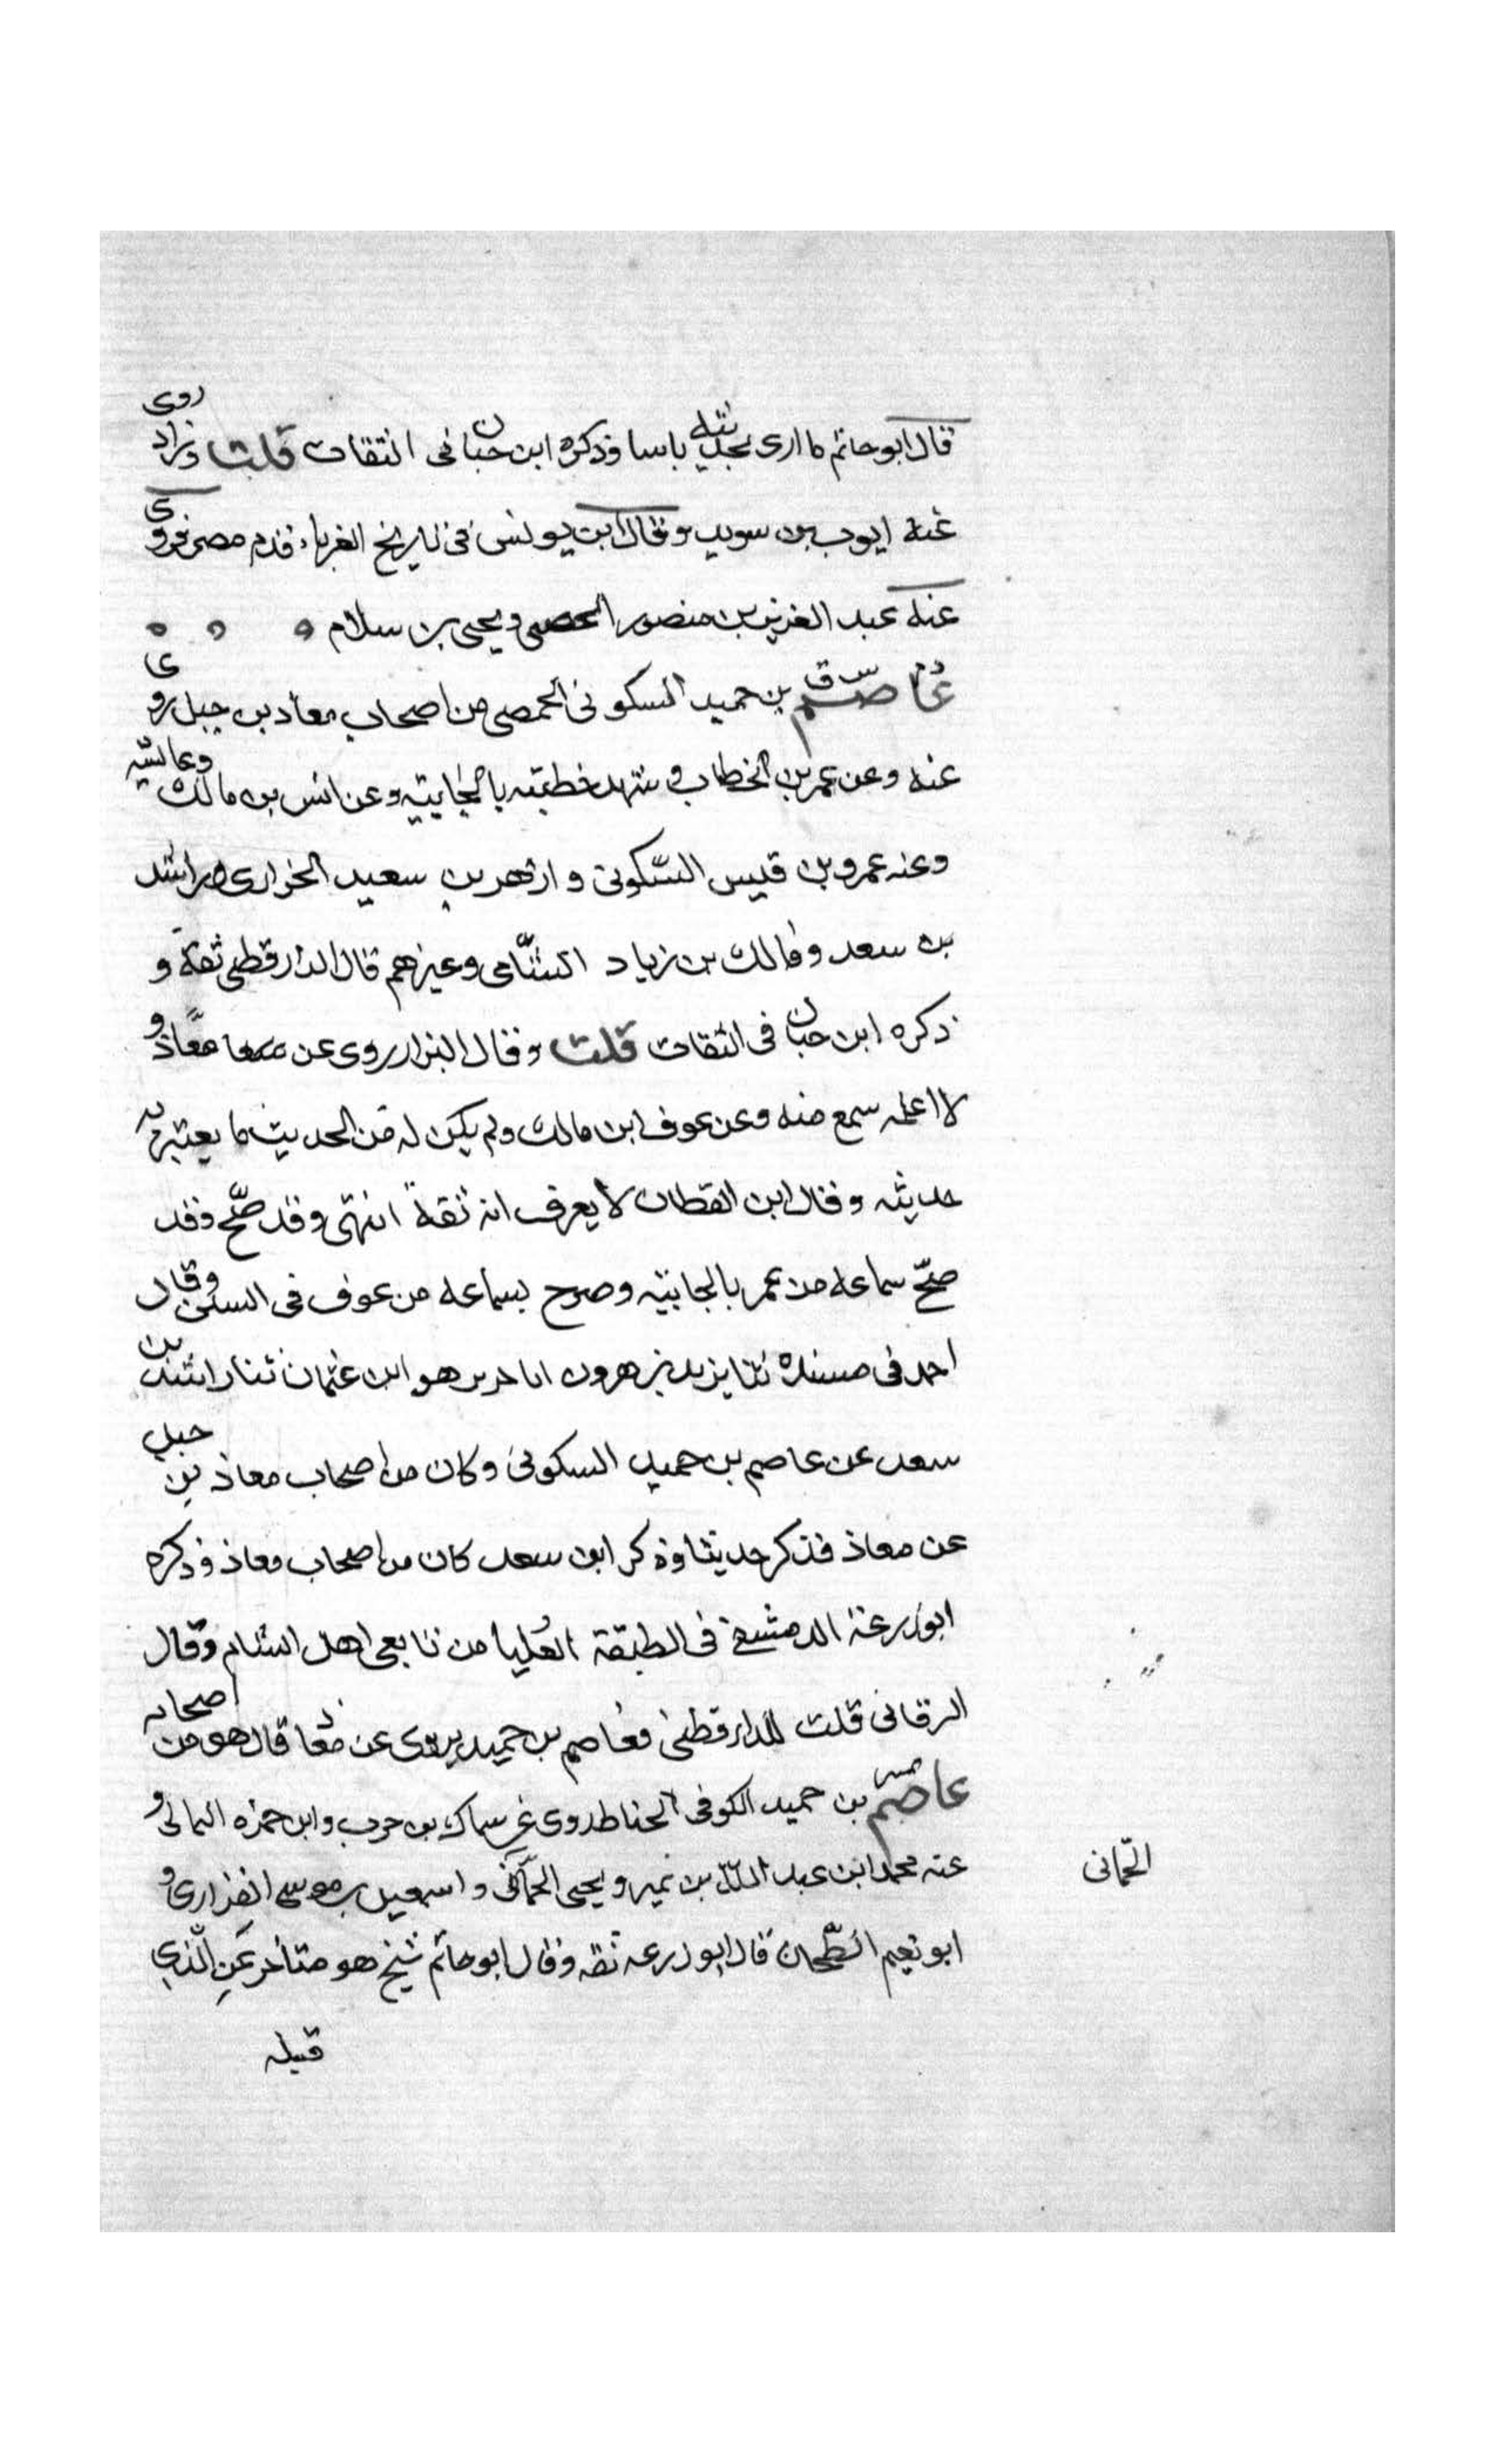 قال ابو حاتم ما ارى بحديثه باسا وذكره ابن حبان فى الثقات قلت وزاد روى
عنه ايوب بن سويد وقال ابن يونس فى تاريخ الغرباء قدم مصر فروى
عنه عبد العزيز بن منصور اليحصبى ويحيى بن سلام
عاصم بن حميد السكونى الحمصى من اصحاب معاذ بن جبل روى
عنه وعن عمر بن الخطاب وشهد خطبته بالجابيه وعن انس بن مالك وعايشه
وعنه عمرو بن قيس السكونى وازهر بن سعيد الحرازى وراشد
بن سعد ومالك بن زياد الشامى وغيرهم قال الدارقطنى ثقة و
ذكره ابن حبان فى الثقات قلت وقال البزار روى عن معاذ و
لا اعلمه سمع منه وعن عوف ابن مالك ولم يكن له من الحديث ما يعتبر به
حديثه وقال ابن القطان لا يعرف انه ثقة انتهى وقد صح وقد
صح سماعه من عمر بالجابيه وصرح بسماعه من عوف فى السنن وقال
احمد فى مسنده ثنا يزيد بن هرون انا حريز هو ابن عثمان ثنا راشد بن
سعد عن عاصم بن حميد السكونى وكان من اصحاب معاذ بن جبل
عن معاذ فذكر حديثا وذكر ابن سعد كان من اصحاب معاذ وذكره
ابو زرعة الدمشقى فى الطبقة العليا من تابعى اهل الشام وقال
البرقانى قلت للدارقطنى فعاصم بن حميد يروى عن معاذ قال هو من اصحابه
عاصم بن حميد الكوفى الحناط روى عن سماك بن حرب وابن حمزه الثمالى و
عنه محمد ابن عبد الله بن نمير ويحيى الحمانى واسمعيل بن موسى الفزارى و
الحمانى
ابو نعيم الطحان قال ابو زرعه ثقه وقال ابو حاتم شيخ هو متأخر عن الذى
قبله